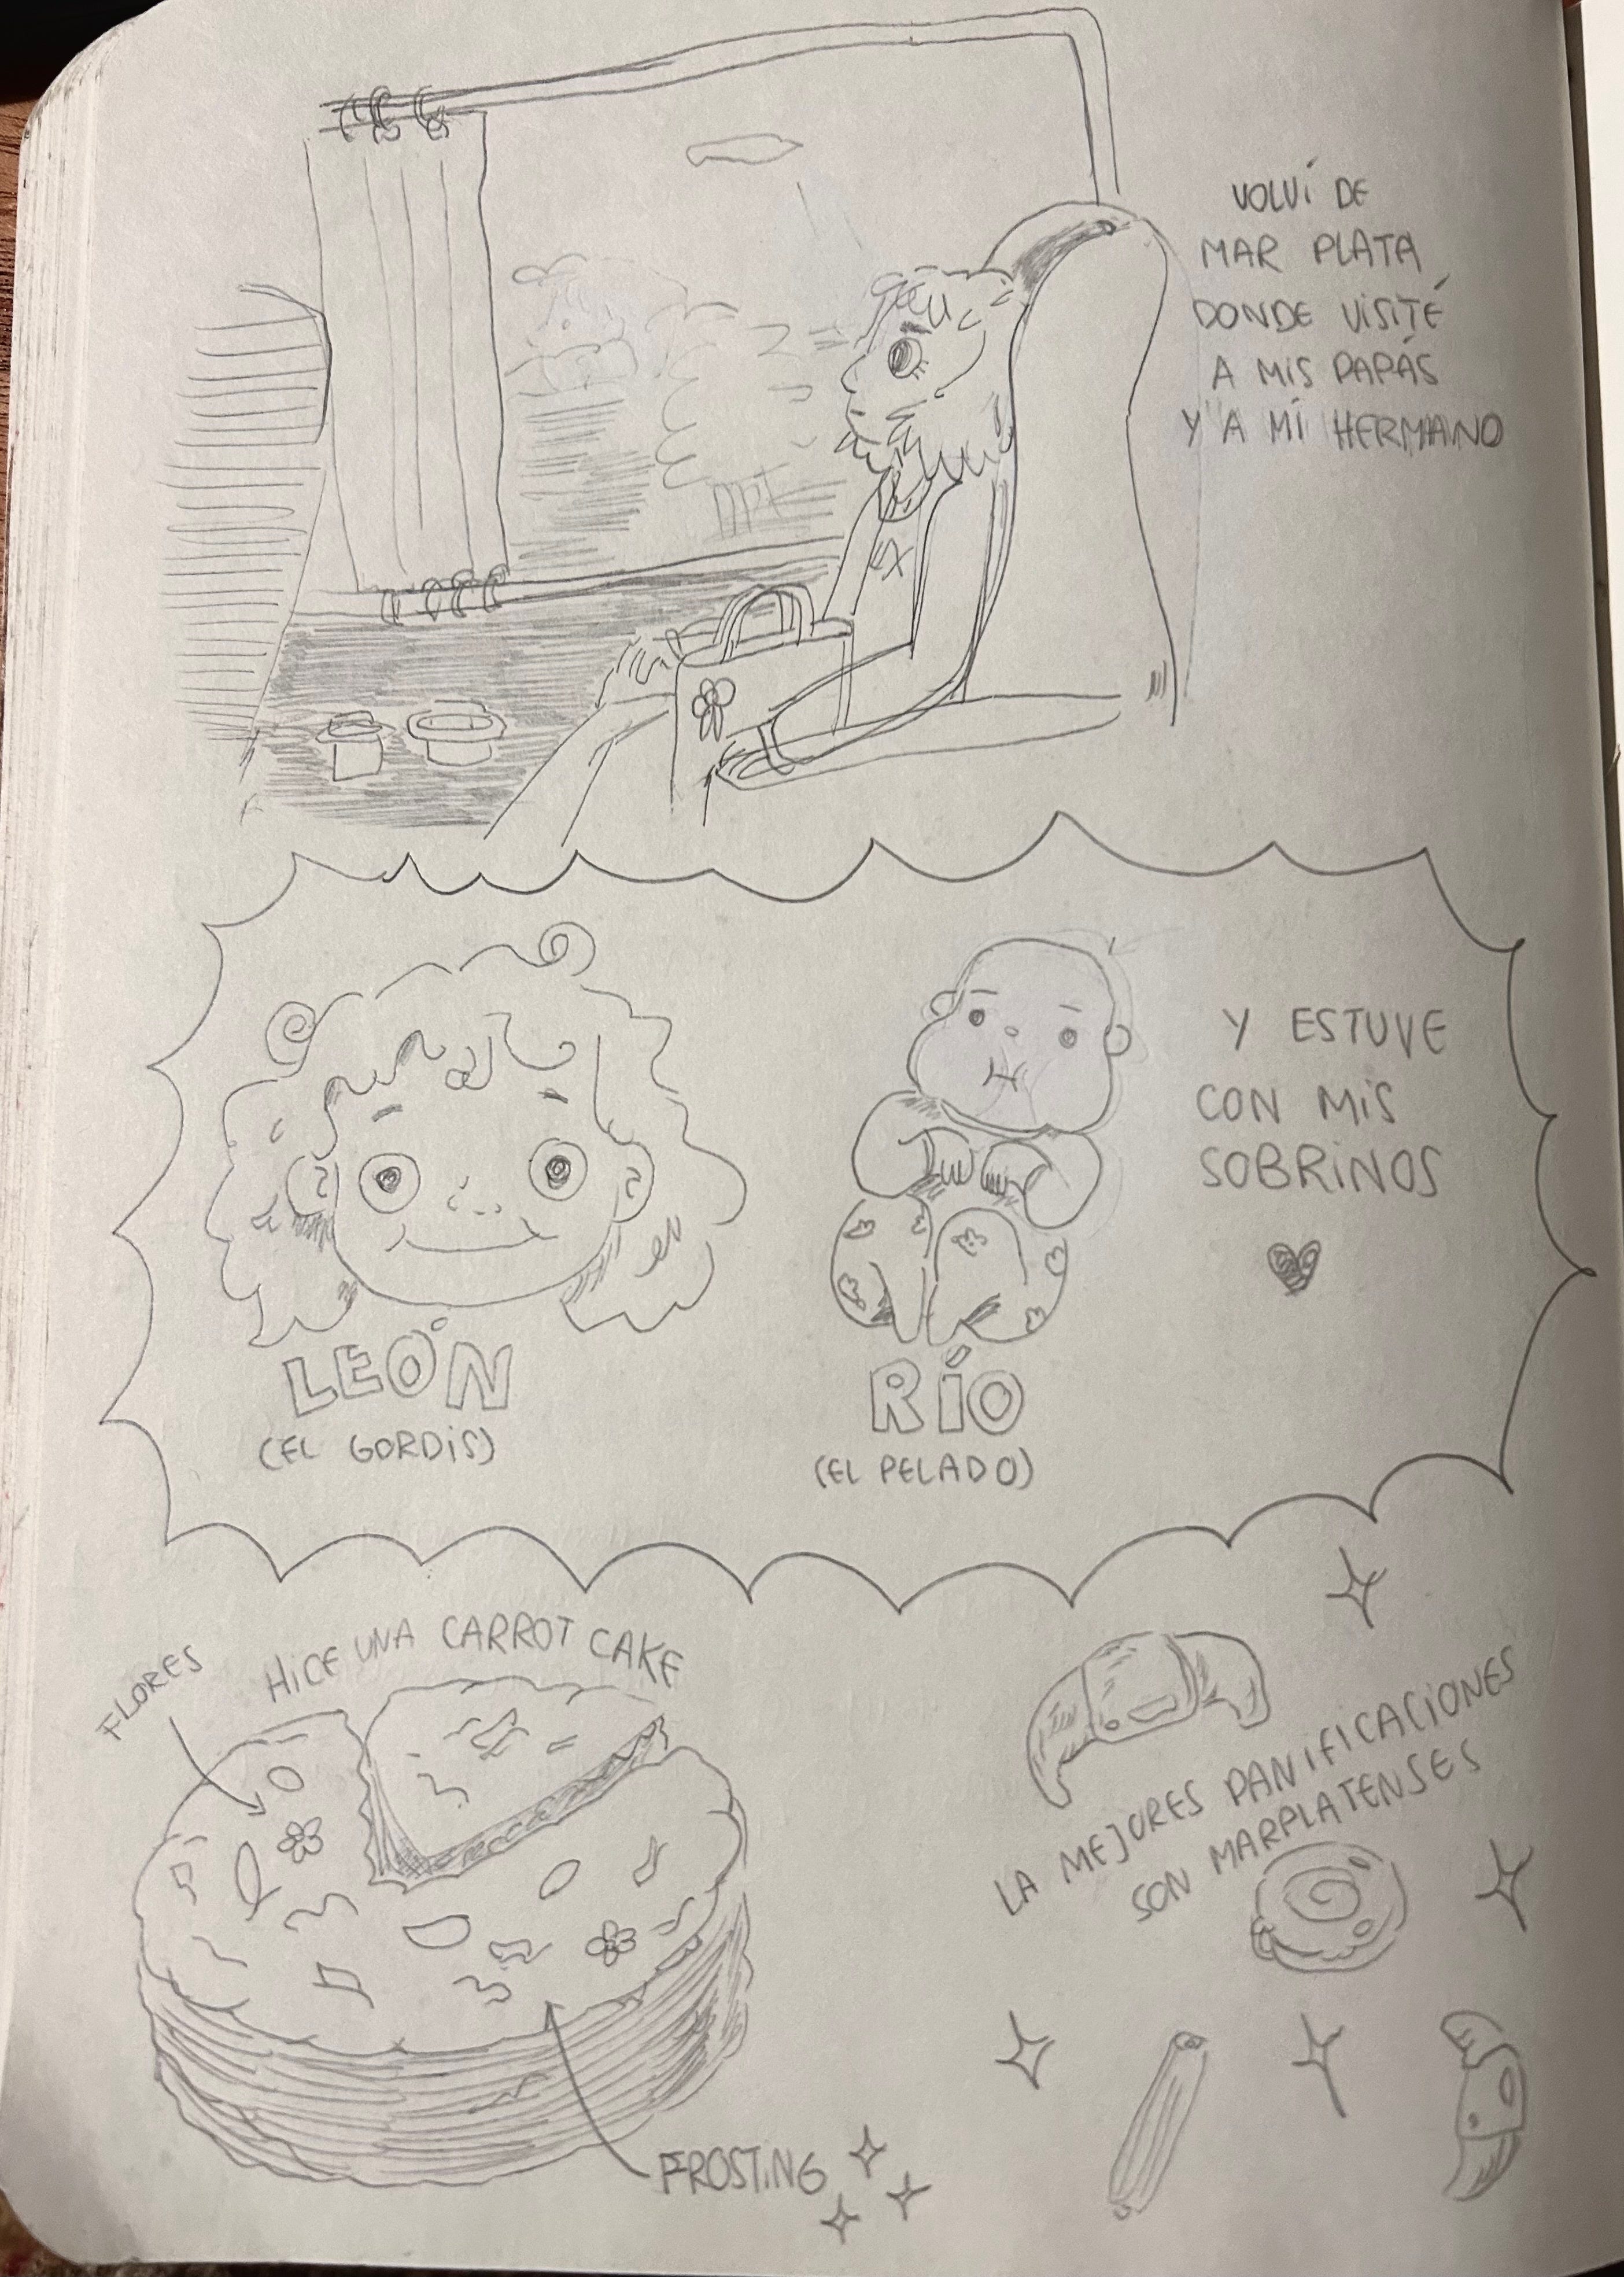 VOLVÍ DE
MAR PLATA
DONDE VISITÉ
A MIS PAPÁS
Y A MI HERMANO
Y ESTUVE
CON MIS
SOBRINOS
LEÓN
(EL GORDIS)
RÍO
(EL PELADO)
HICE UNA CARROT CAKE
FLORES
FROSTING
LA MEJORES PANIFICACIONES
SON MARPLATENSES